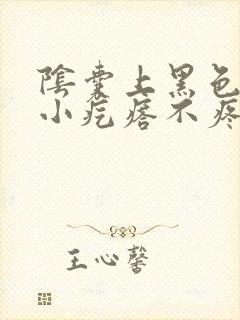 陰囊上黑色
小疙瘩不疼
王心馨